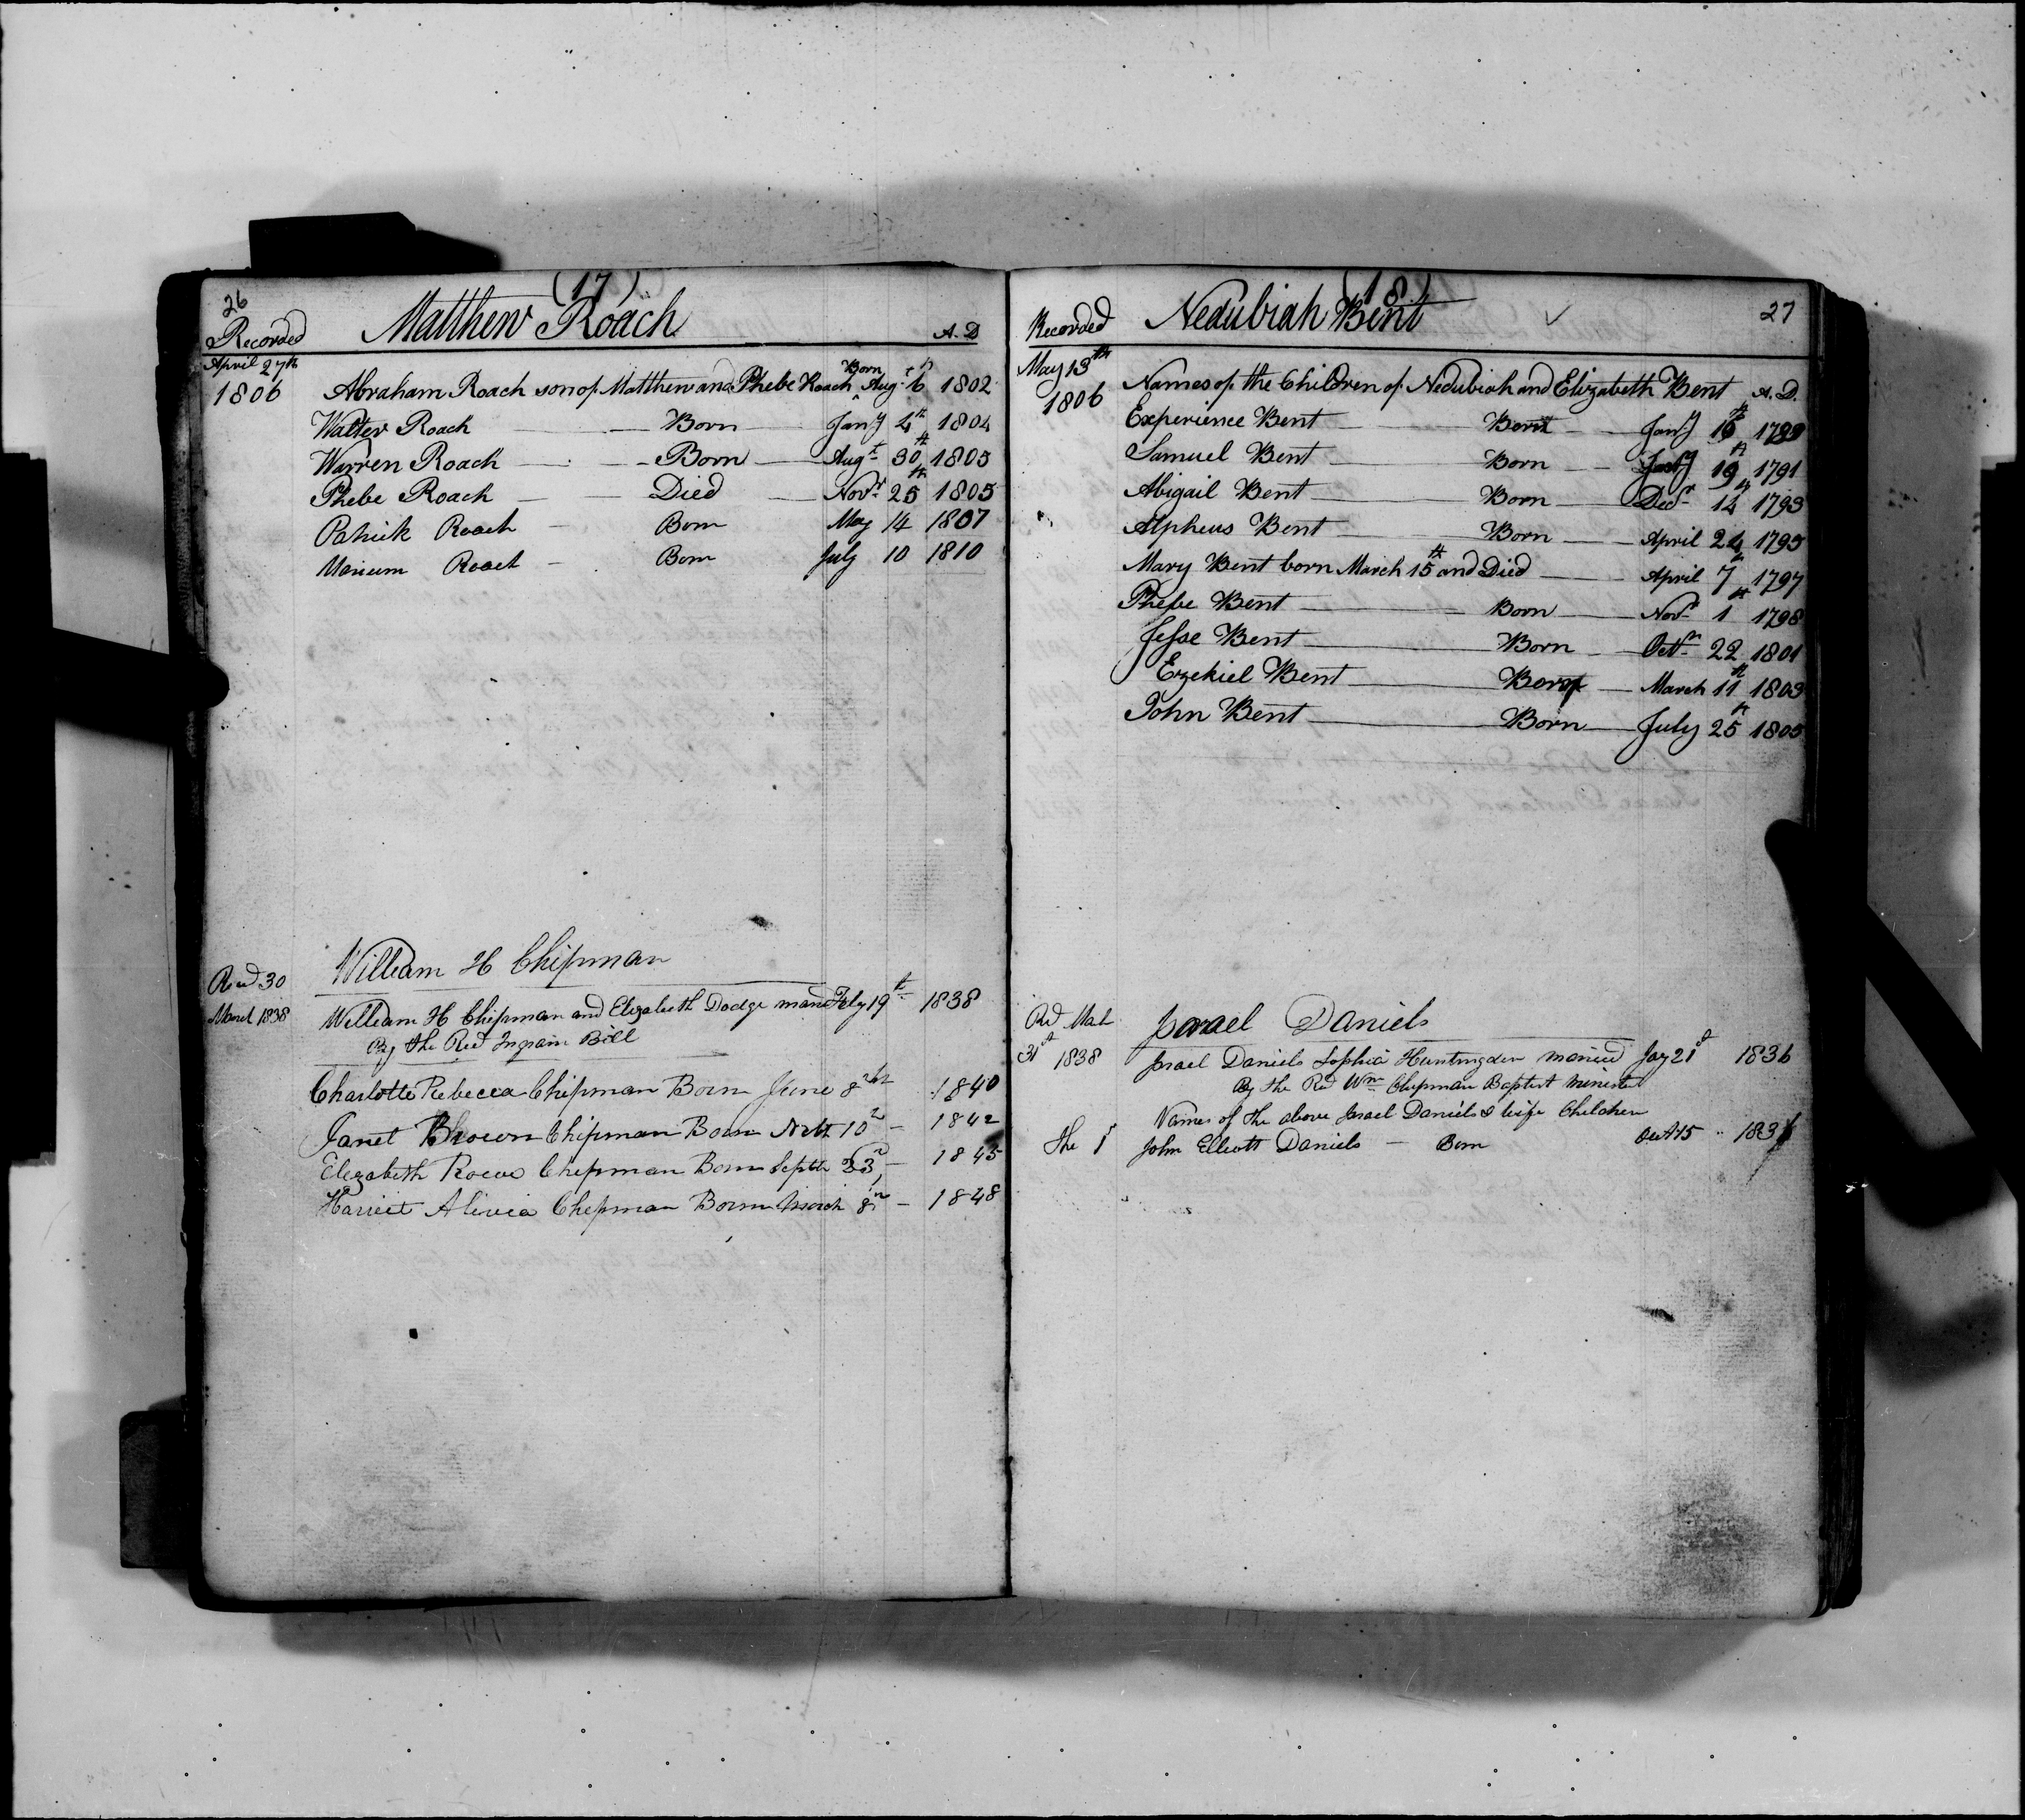 26
(17)
Recorded Matthew Roach A.D
April 27th
1806 Abraham Roach son of Matthew and Phebe Roach ^Born Augt 6th 1802
Walter Roach Born Jany 4th 1804
Warren Roach Born Augt 30th 1805
Phebe Roach Died Novr 25th 1805
Patrick Roach Born May 14 1807
Mariam Roach Born July 10 1810
William H Chipman
Recd 30
March 1838 William H Chipman and Elizabeth Dodge marrd Feby 19th 1838
By the Revd Ingram Bill
Charlotte Rebecca Chipman Born June 8th 1840
Janet Brown Chipman Born 10 1842
Elizabeth Chipman Born Septbr 23 1845
Harriet Alivia Chipman Born March 8th 1848
(18)
27
Recorded Nedubiah Bent
May 13th
1806 Names of the Children of Nedubiah and Elizabeth Bent A.D.
Experience Bent Born Jany 1789
Samuel Bent Born 19th 1791
Abigail Bent Born Decr 14th 1793
Alpheus Bent Born April 24 1795
Mary Bent born March 15th and Died April 7th 1797
Phebe Bent Born Novr 1st 1798
Jesse Bent Born Octr 22 1801
Ezekiel Bent Born March 11th 1803
John Bent Born July 25th 1805
Israel Daniels
Rd Mah
31st 1838 Israel Daniels Sophia Huntingden married Jay 21st 1836
By the Rev Wm Chipman Baptist Minister
Names of the above Israel Daniels & wife Children
the 1 John Elliott Daniels — Born Oct 15